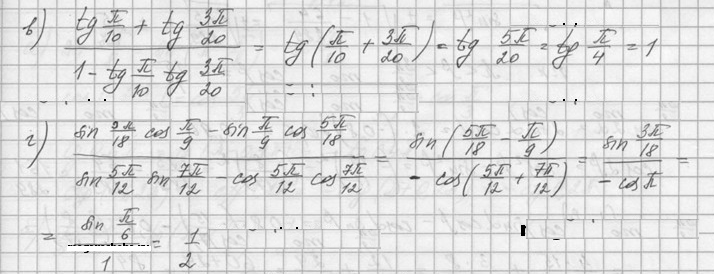 в) (tg π/10 + tg 3π/20) / (1 - tg π/10 tg 3π/20) = tg(π/10 + 3π/20) = tg 5π/20 = tg π/4 = 1
г) (sin 5π/18 cos π/9 - sin π/9 cos 5π/18) / (sin 5π/12 sin 7π/12 - cos 5π/12 cos 7π/12) = sin(5π/18 - π/9) / (- cos(5π/12 + 7π/12)) = sin 3π/18 / (- cos π) =
= sin π/6 / 1 = 1/2